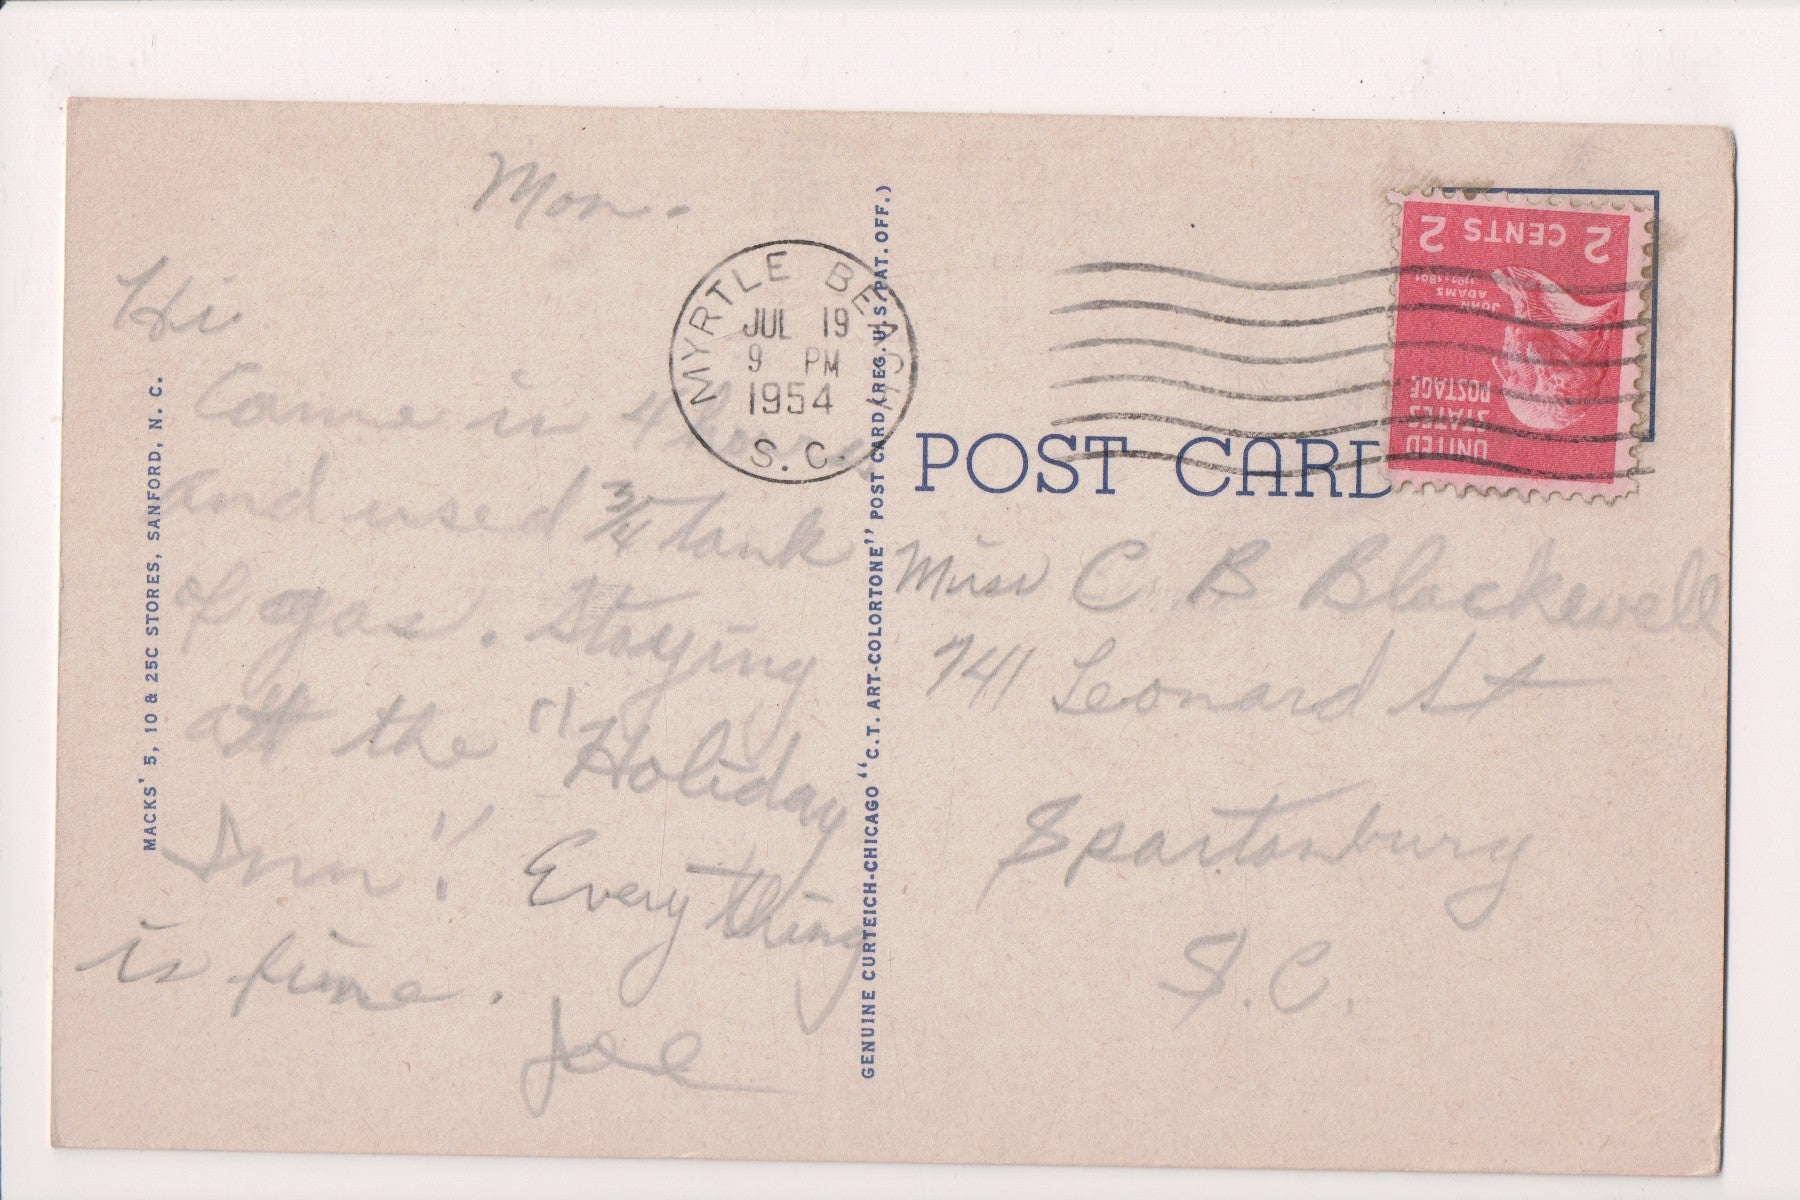 Mon.
Hi
Came in 4 hours
and used 3/4 tank
of gas. Staying
att the "Holiday
Inn". Everything
is fine.
Joe
MACKS' 5, 10 & 25C STORES, SANFORD, N. C.
GENUINE CURTEICH-CHICAGO "C.T. ART-COLORTONE" POST CARD (REG. U.S. PAT. OFF.)
MYRTLE BEACH
JUL 19
9 PM
1954
S.C.
POST CARD
2 CENTS 2
JOHN
ADAMS
1797-1801
UNITED
STATES
POSTAGE
Miss C B Blackwell
741 Leonard St
Spartanburg
S.C.